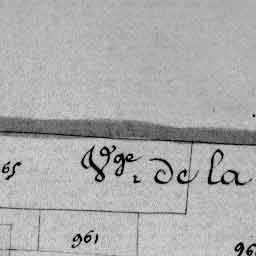 Vge. de la
65
961
96